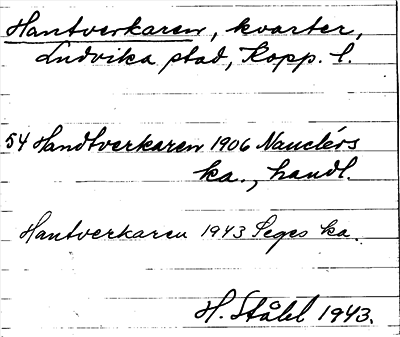 Hantverkaren, kvarter,
Ludvika stad, Kopp. l.
54 Handtverkaren 1906 Nauclérs
ka., handl.
Hantverkaren 1943 Seges ka.
H. Ståhl 1943.